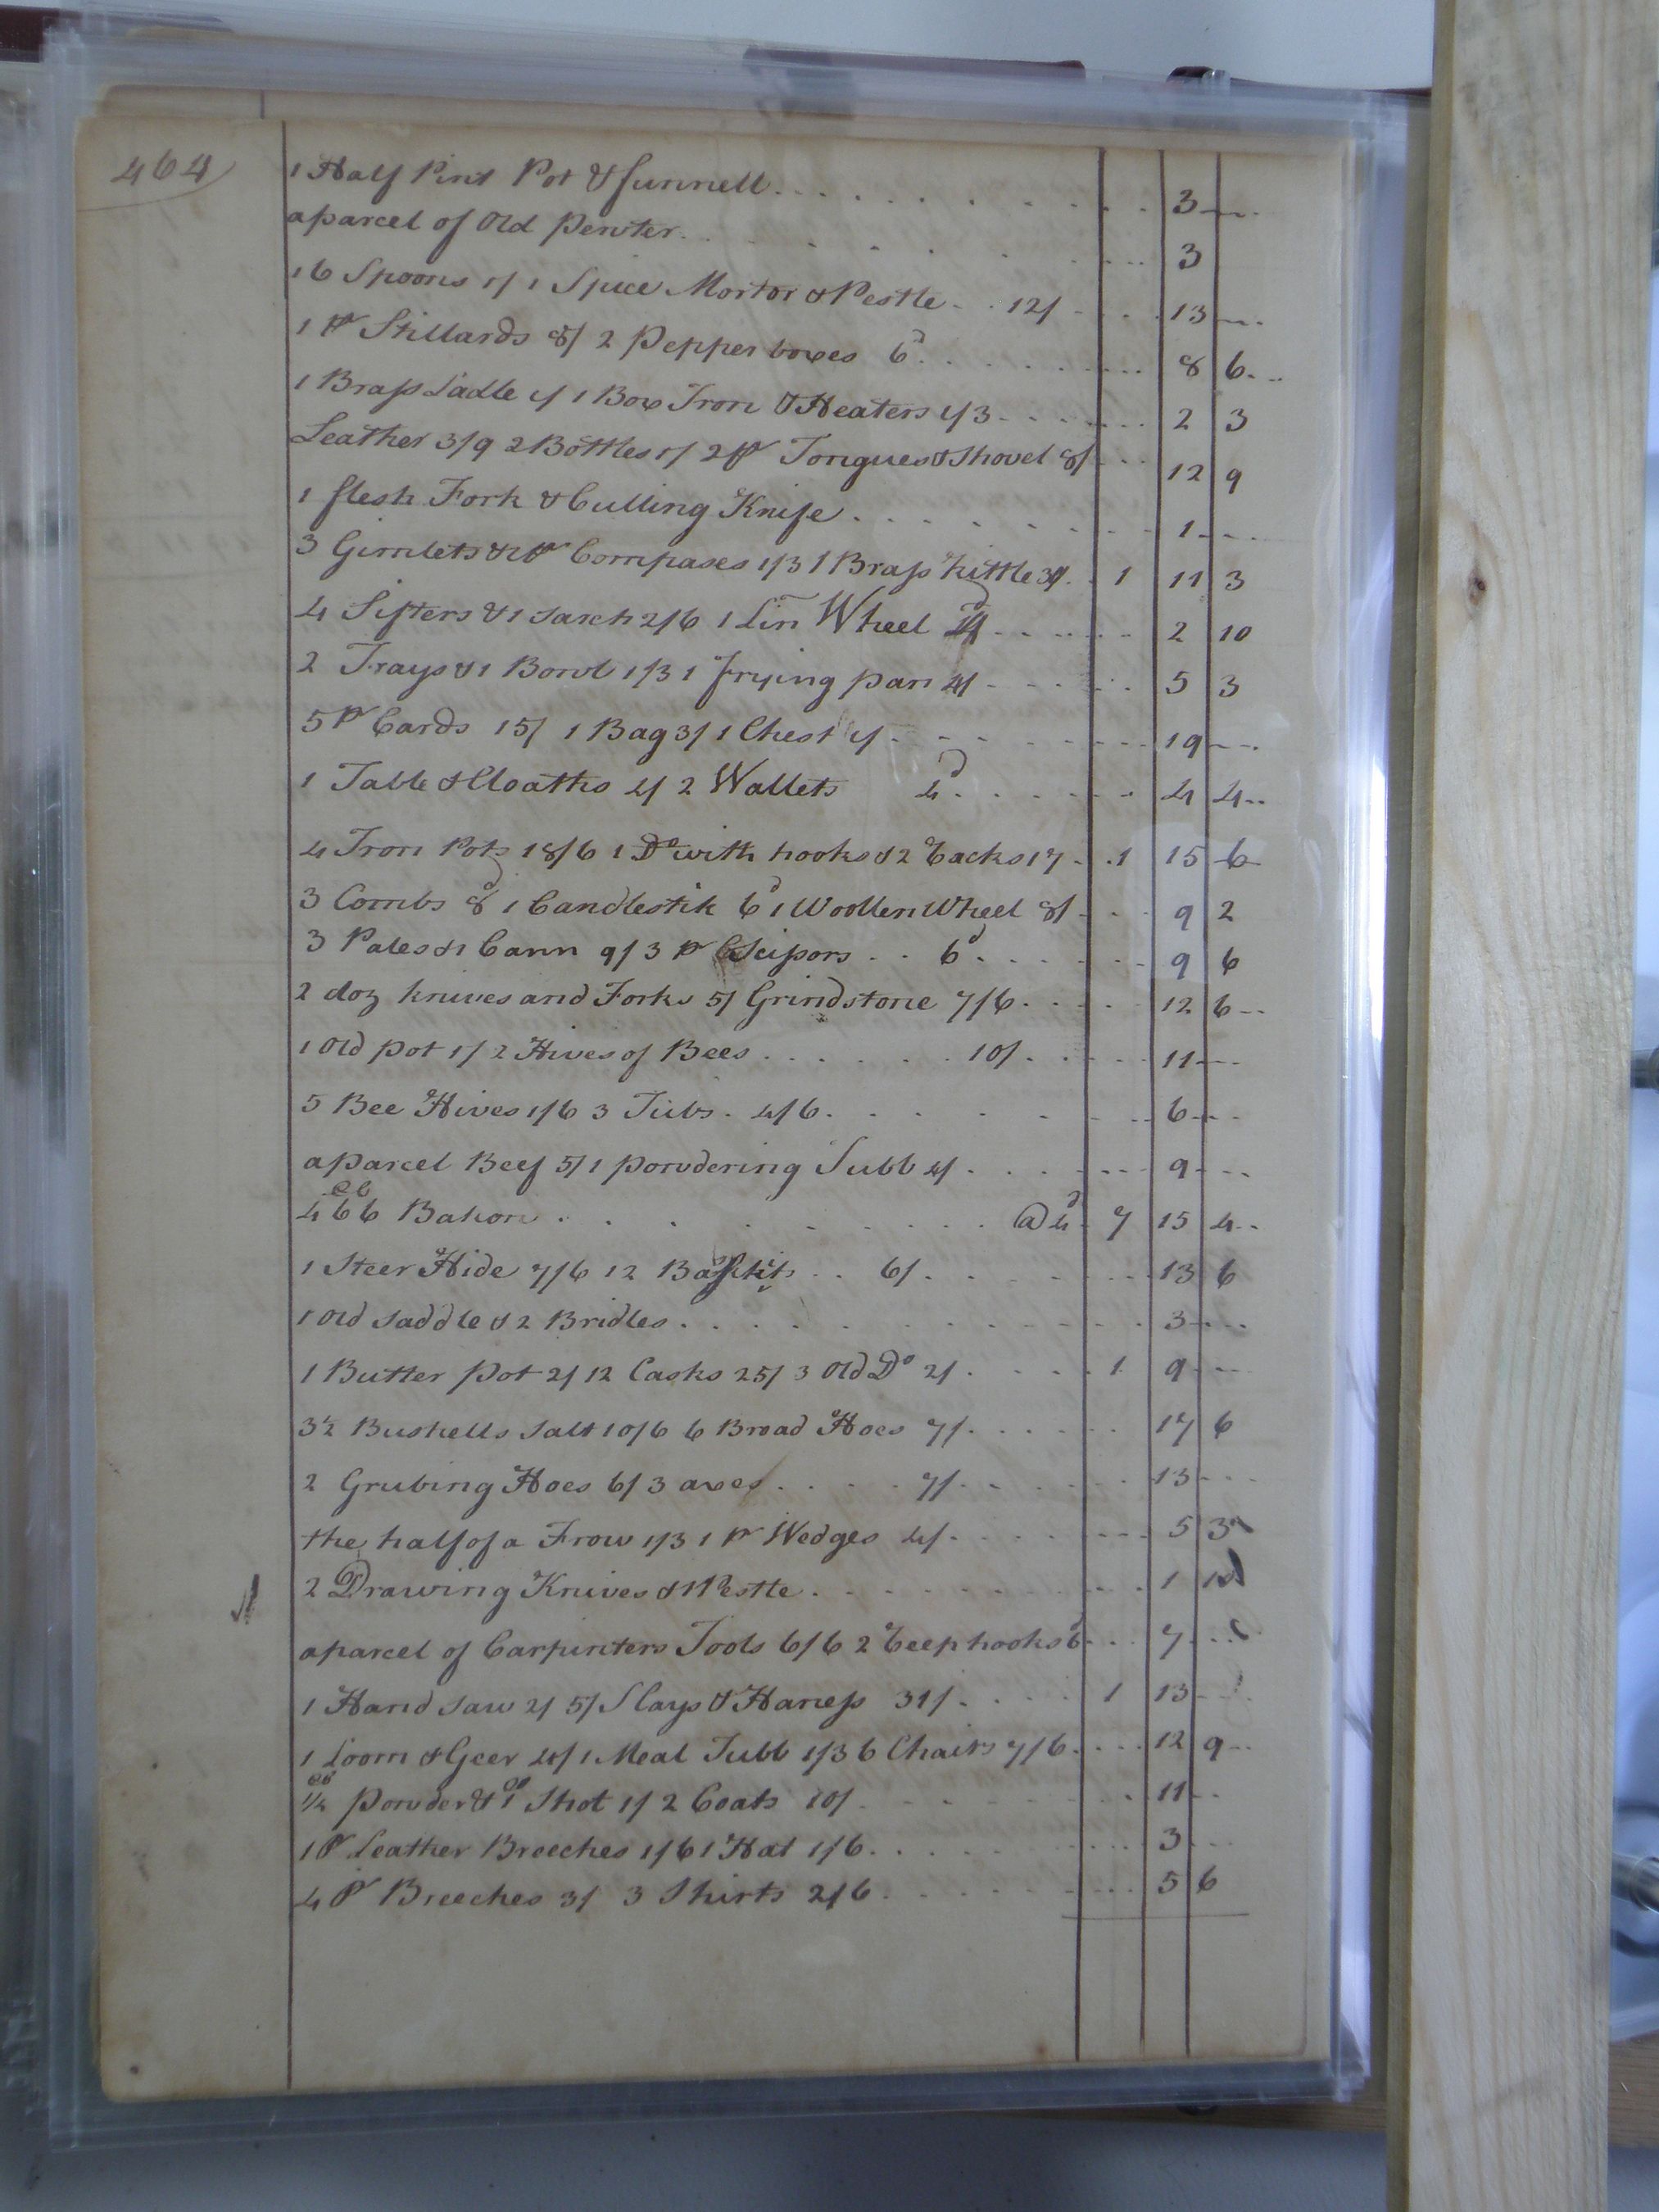 464
1 Half Pint Pot & funnell . . . 3 —
a parcel of Old Pewter . . . 3
16 Spoons 1/ 1 Spice Mortor & Pestle . . 12/ . . . 13 —
1 pr Stillards 8/ 2 Pepper boxes 6d . . . 8 6
1 Brass Ladle 1/ 1 Box Iron & Heaters 1/3 . . . 2 3
Leather 3/9 2 Bottles 1/ 2 pr Tongues & Shovel 8/ . . . 12 9
1 flesh Fork & Cutting Knife . . . 1 —
3 Gimlets & 1 pr Compases 1/3 1 Brass Kittle 30/ . . 1 11 3
4 Sifters & 1 Sarch 2/6 1 Lin Wheel 4d . . . 2 10
2 Trays & 1 Bowl 1/3 1 frying pan 4/ . . . 5 3
5 pr Cards 15/ 1 Bag 3/ 1 Chest 1/ . . . 19 —
1 Table & Cloaths 4/ 2 Wallets 4d . . . 4 4
4 Iron Pots 18/6 1 Do with hooks & 2 Racks 17 . . 1 15 6
3 Combs 8d 1 Candlestik 6d 1 Woollen Wheel 8/ . . . 9 2
3 Pales & 1 Cann 9/ 3 pr Scissors . . 6d . . . 9 6
2 doz knives and Forks 5/ Grindstone 7/6 . . . 12 6
1 Old pot 1/ 2 Hives of Bees . . . 10/ . . . 11 —
5 Bee Hives 1/6 3 Tubs . 4/6 . . . 6 —
a parcel Beef 5/ 1 powdering Tubb 4/ . . . 9 —
466 lb Bakon . . . @ 4d . 7 15 4
1 Steer Hide 7/6 12 Baskits . . 6/ . . . 13 6
1 Old Saddle & 2 Bridles . . . 3 —
1 Butter pot 2/ 12 Casks 25/ 3 Old Do 2/ . . . 1 9 —
3½ Bushells Salt 10/6 6 Broad Hoes 7/ . . . 17 6
2 Grubing Hoes 6/ 3 axes . . . 7/ . . . 13 —
the half of a Frow 1/3 1 pr Wedges 4/ . . . 5 3
2 Drawing Knives & 1 Pestle . . . 1
a parcel of Carpinters Tools 6/6 2 Reep hooks 6d . . . 7 —
1 Hand Saw 2/ 5/ Slays & Harness 31/ . . . 1 13 —
1 Loom & Geer 4/ 1 Meal Tubb 1/3 6 Chairs 7/6 . . . 12 9
1/4 lb powder & 1 lb Shot 1/ 2 Coats 10/ . . . 11 —
1 pr Leather Breeches 1/6 1 Hat 1/6 . . . 3 —
4 pr Breeches 3/ 3 Shirts 2/6 . . . 5 6